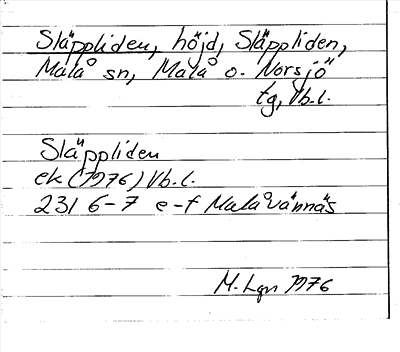 Släppliden, höjd, Släppliden,
Malå sn, Malå o. Norsjö
tg, Vb.l.
Släppliden
ek (1976) Vb.l.
231 6-7 e-f Malåvännäs
M. Lgn 1976